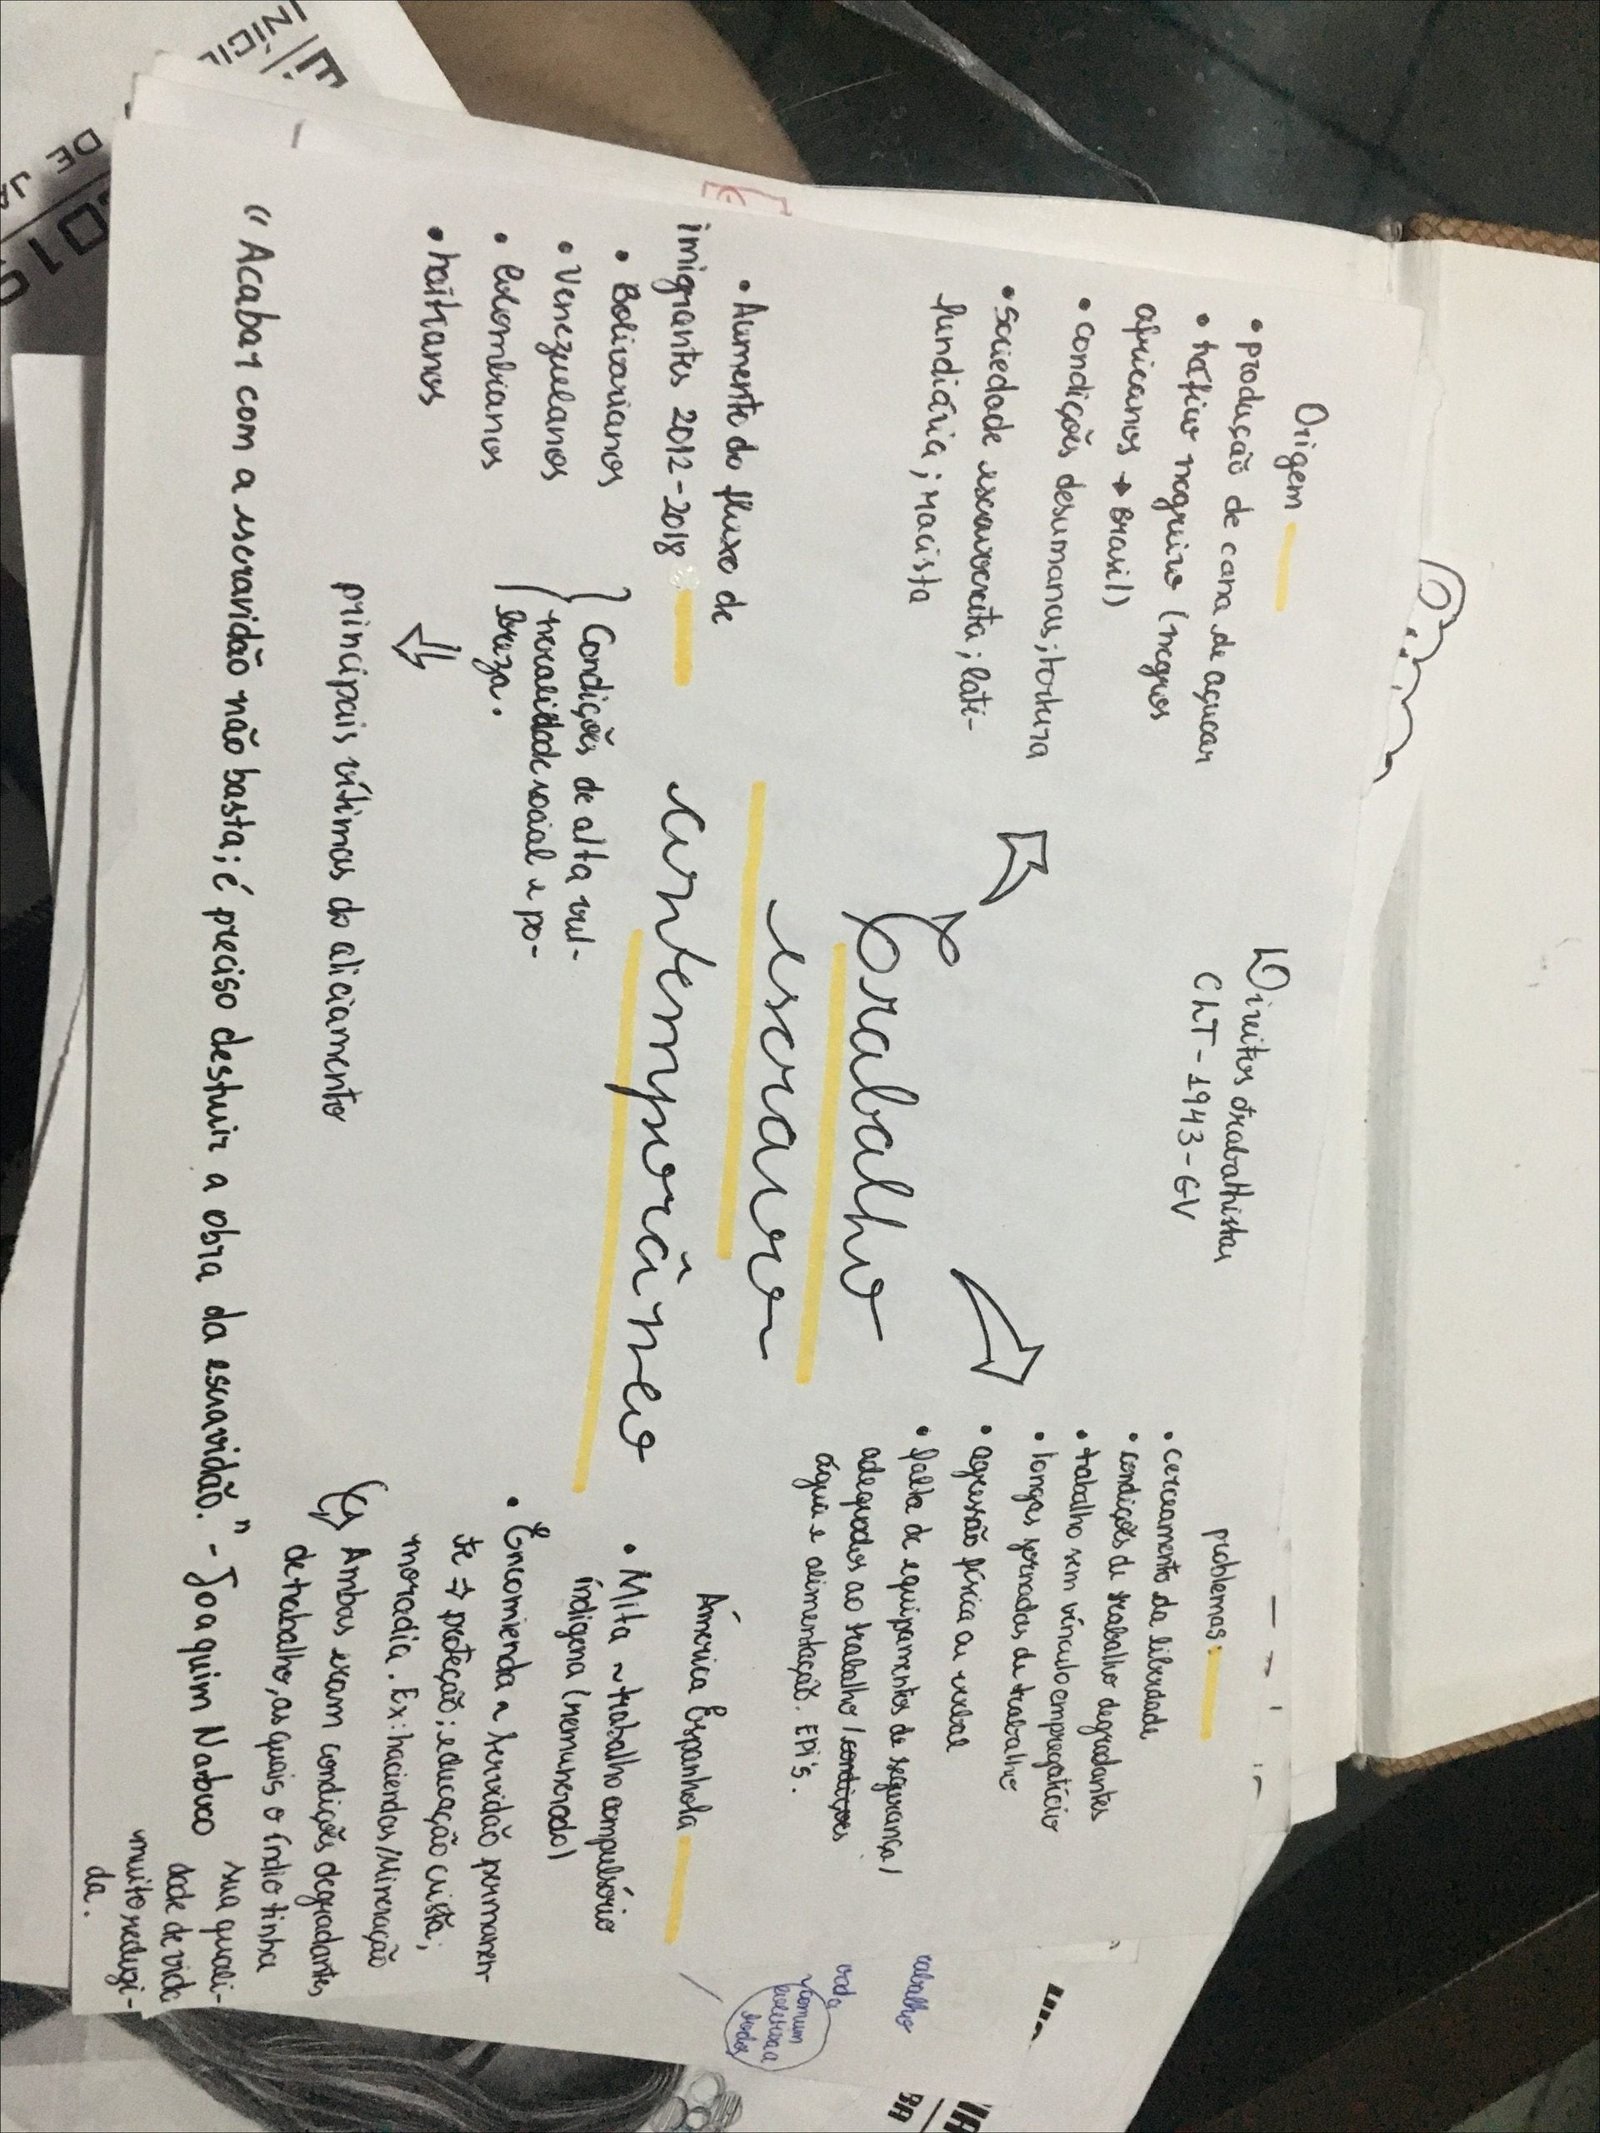 Origem
• produção de cana de açucar
• tráfico negreiro (negros
africanos → Brasil)
• condições desumanas; tortura
• sociedade escravocrata; lati-
fundiária; racista
Direitos trabalhistas
CLT - 1943 - GV
problemas:
• cerceamento da liberdade
• condições de trabalho degradantes
• trabalho sem vínculo empregatício
• longas jornadas de trabalho
• agressão física ou verbal
• falta de equipamentos de segurança/
adequados ao trabalho/condições
água e alimentação. EPI's.
Trabalho
escravo
contemporâneo
• Aumento do fluxo de
imigrantes 2012-2018
• Bolivarianos
• Venezuelanos
• Colombianos
• haitianos
Condições de alta vul-
nerabilidade social e po-
breza.
principais vítimas do aliciamento
América Espanhola
• Mita ~ trabalho compulsório
indígena (remunerado)
• Encomienda ~ servidão permanen-
te ⇒ proteção; educação cristã;
moradia. Ex: haciendas/Mineração
Ambas eram condições degradantes
de trabalho, as quais o índio tinha
sua quali-
dade de vida
muito reduzi-
da.
"Acabar com a escravidão não basta; é preciso destruir a obra da escravidão." - Joaquim Nabuco
DE